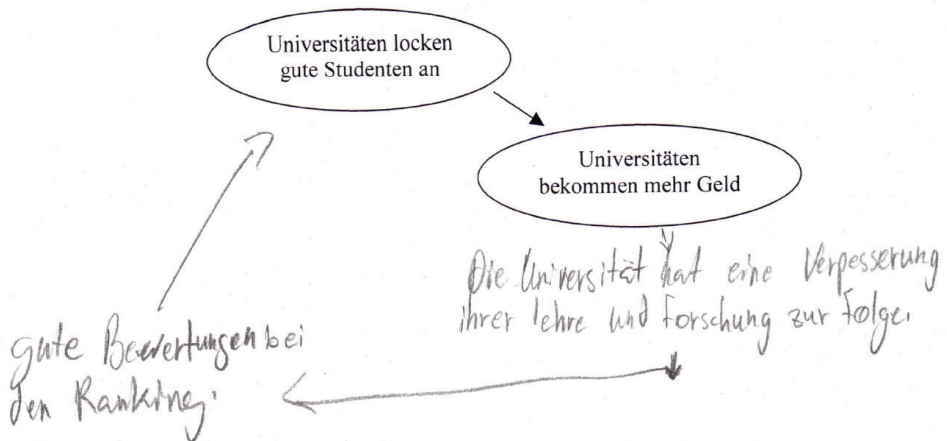 Universitäten locken
gute Studenten an
Universitäten
bekommen mehr Geld
Die Universität hat eine Verpesserung
ihrer lehre und Forschung zur Folge.
gute Bewertungen bei
den Ranking.